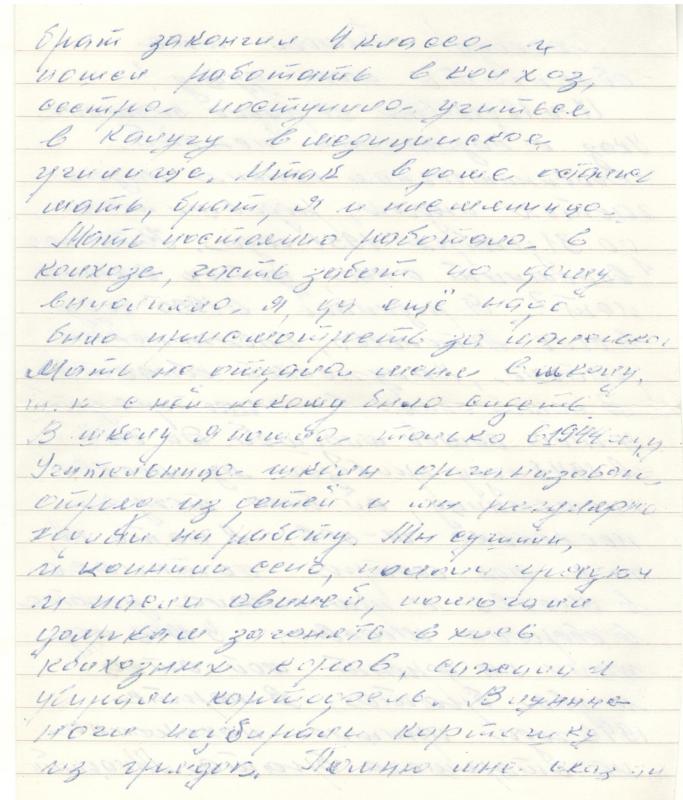 брат закончил 4 класса и
пошёл работать в колхоз,
сестра поступила учиться
в Калугу в медицинское
училище. Итак в доме остались
мать, брат, я и племянница.
Мать постоянно работала в
колхозе, часть забот по дому
выполняла я, да ещё надо
было присмотреть за маленькой
Мать не отдала меня в школу,
т. к. с ней некому было сидеть
В школу я пошла только в 1944 году
Учительница школы организовала
отряд из детей и мы регулярно
ходили на работу. Мы сушили,
и копнили сено, пололи
и пасли свиней, помогали
дояркам загонять в хлев
колхозных коров, сажали и
убирали картофель. В лунные
ночи подбирали картошку
из грядок. Помню мне